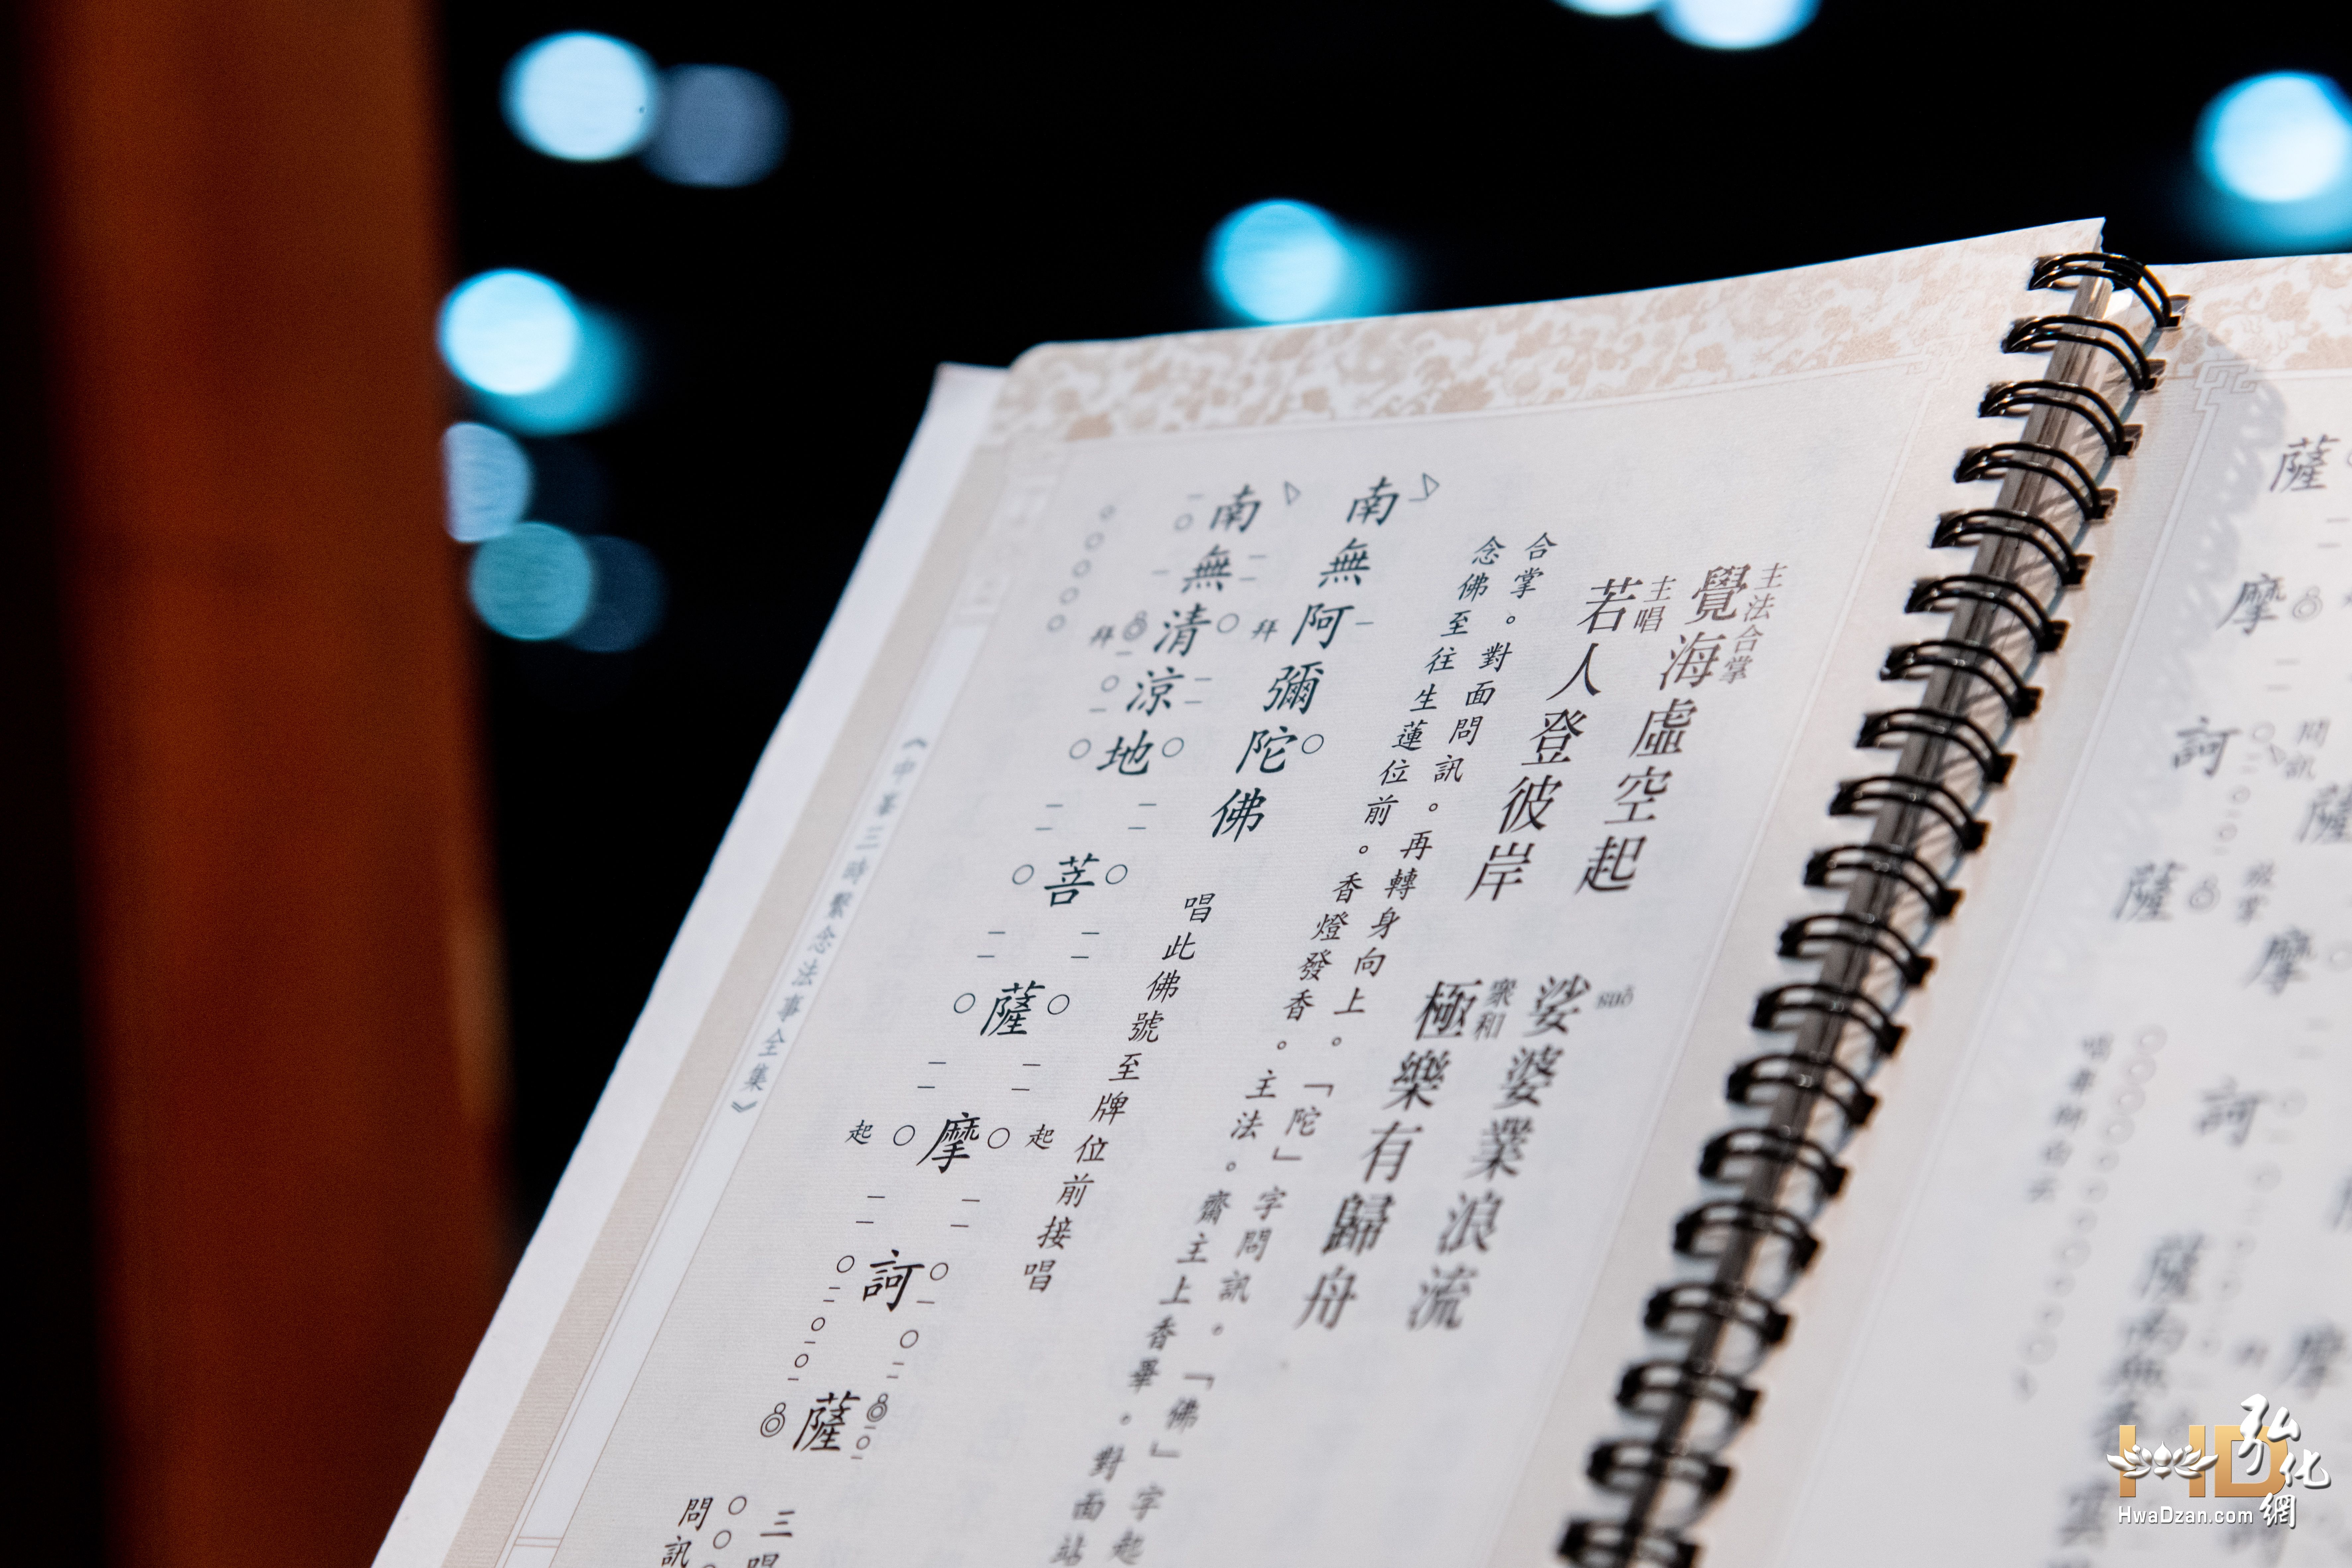 主法合掌
覺海虛空起
娑婆業浪流
suō
主唱
若人登彼岸
眾和
極樂有歸舟
合掌。對面問訊。再轉身向上。「陀」字問訊。「佛」字起
念佛至往生蓮位前。香燈發香。主法。齋主上香畢。對面站
南無阿彌陀佛
拜
唱此佛號至牌位前接唱
南無清涼地菩薩摩訶薩
拜
起
起
三唱
問訊
《中峯三時繫念法事全集》
薩
摩
訶
薩
問訊
薩
摩
訶
摩
薩
HD
弘化網
HwaDzan.com